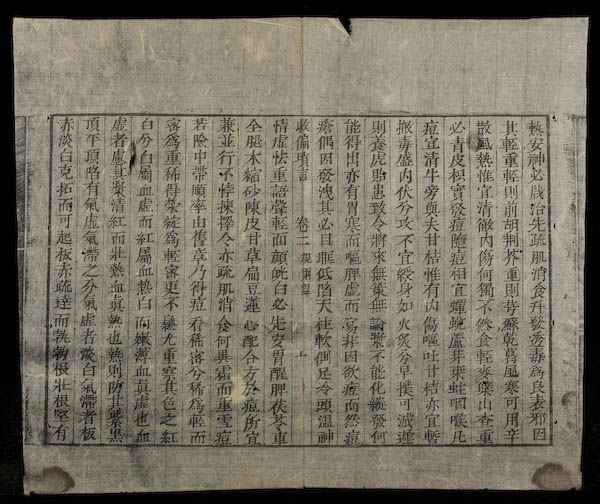 熱安神必歲治先疏肌消食升發透毒為良表邪因
其輕重輕則前胡荆芥重則芎蘇乾葛風寒可用辛
散風熱惟宜清徹內傷何獨不然食輕麥蘗山查重
必青皮枳實發痘隨痘相宜蟬蛻蘆芽桑蛀咽喉凡
痘宜清牛旁與夫甘桔惟有內傷嘔吐甘桔亦宜暫
撤毒盛內伏兮攻不宜緩身如火炙兮早撲可滅遲
則養虎貽患致令將來無藥無論漿不能化縱發何
能得出亦有胃寒而嘔脾虛而瀉非因欲痘而然痘
瘡偶因發洩其必目眶低陷天柱軟倒足冷頭溫神
救偏瑣言 卷二 十
情虛怯重語聲輕面顏㿠白必先安胃醒脾茯苓車
全腿木縮砂陳皮甘草扁豆蓮心配合方於痘所宜
兼並行不悖揀擇令亦疏肌消食何異霜而重雪痘
若險中帶順率由舊章乃得痘看稀密兮稀為輕而
密為重稀得蒙為輕密更不尤重察其色之紅
白兮白屬血虛而紅屬血熱白而嫩薄血真虛也血
虛者慮其漿清紅而壯熱血真熱也熱則防其紫黑
頂平頂陷有氣虛氣滯之分氣虛者淡白氣滯者板
赤淡白克拓而可起板赤疏達而就根壯根堅有